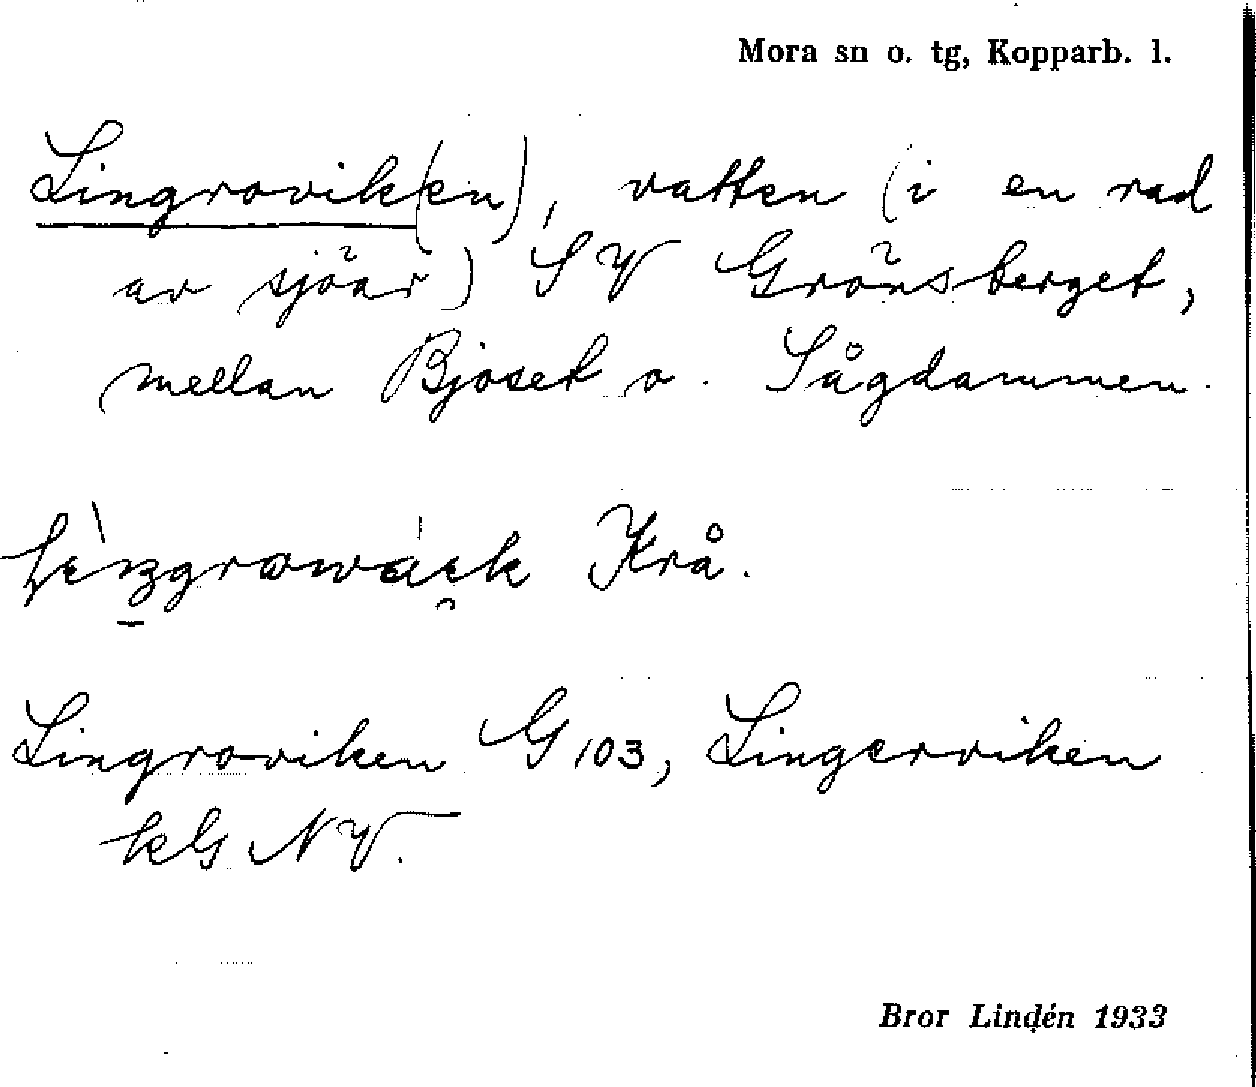 Mora sn o. tg, Kopparb. l.
Lingrovik(en), vatten (i en rad
av sjöar) SV Grönsberget,
mellan Bjoset o. Sågdammen.
Krå.
Lingroviken G 103, Lingerviken
kG NV.
Bror Lindén 1933